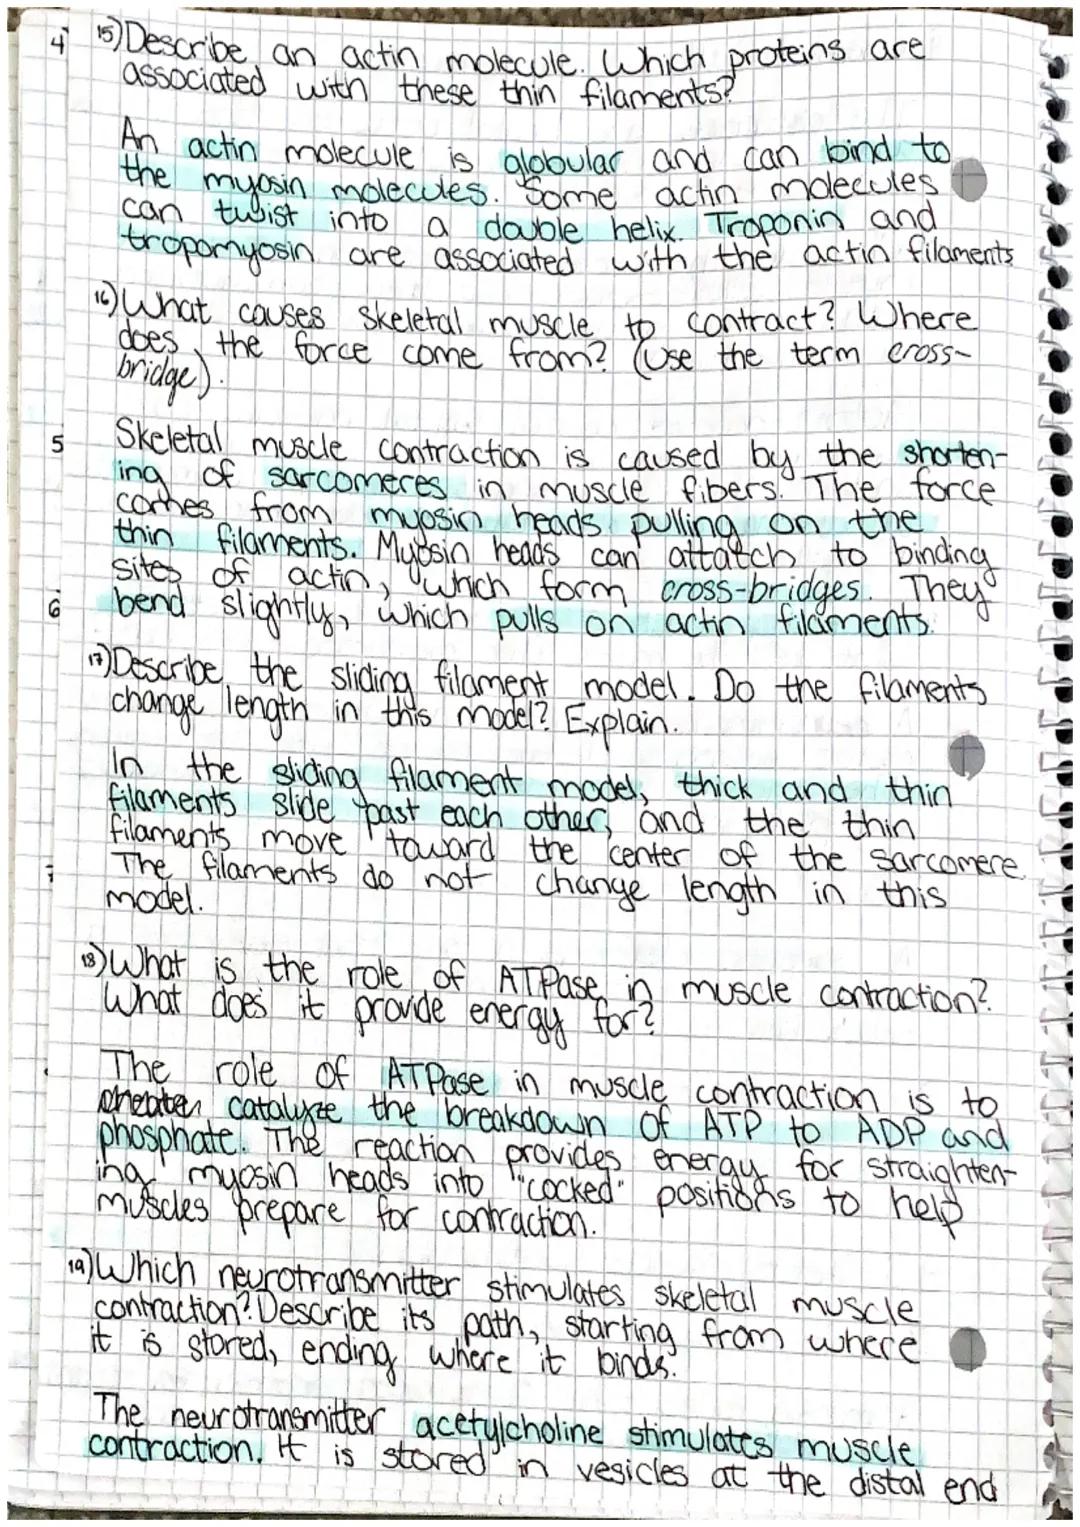 4 15) Describe an actin molecule. Which proteins are
associated with these thin filaments?
An actin molecule is globular and can bind to
the myosin molecules. Some actin molecules
can twist into a double helix. Troponin and
tropomyosin are associated with the actin filaments
16) What causes skeletal muscle to contract? Where
does the force come from? (Use the term cross-
bridge).
5 Skeletal muscle contraction is caused by the shorten-
ing of sarcomeres in muscle fibers. The force
comes from myosin heads pulling on the
thin filaments. Myosin heads can attatch to binding
sites of actin, which form cross-bridges. They
6 bend slightly, which pulls on actin filaments.
17) Describe the sliding filament model. Do the filaments
change length in this model? Explain.
In the sliding filament model, thick and thin
filaments slide past each other, and the thin
filaments move toward the center of the sarcomere.
7 The filaments do not change length in this
model.
18) What is the role of ATPase in muscle contraction?
What does it provide energy for?
The role of ATPase in muscle contraction is to
catalyze the breakdown of ATP to ADP and
phosphate. The reaction provides energy for straighten-
ing myosin heads into "cocked" positions to help
muscles prepare for contraction.
19) Which neurotransmitter stimulates skeletal muscle
contraction? Describe its path, starting from where
it is stored, ending where it binds.
The neurotransmitter acetylcholine stimulates muscle
contraction. It is stored in vesicles at the distal end